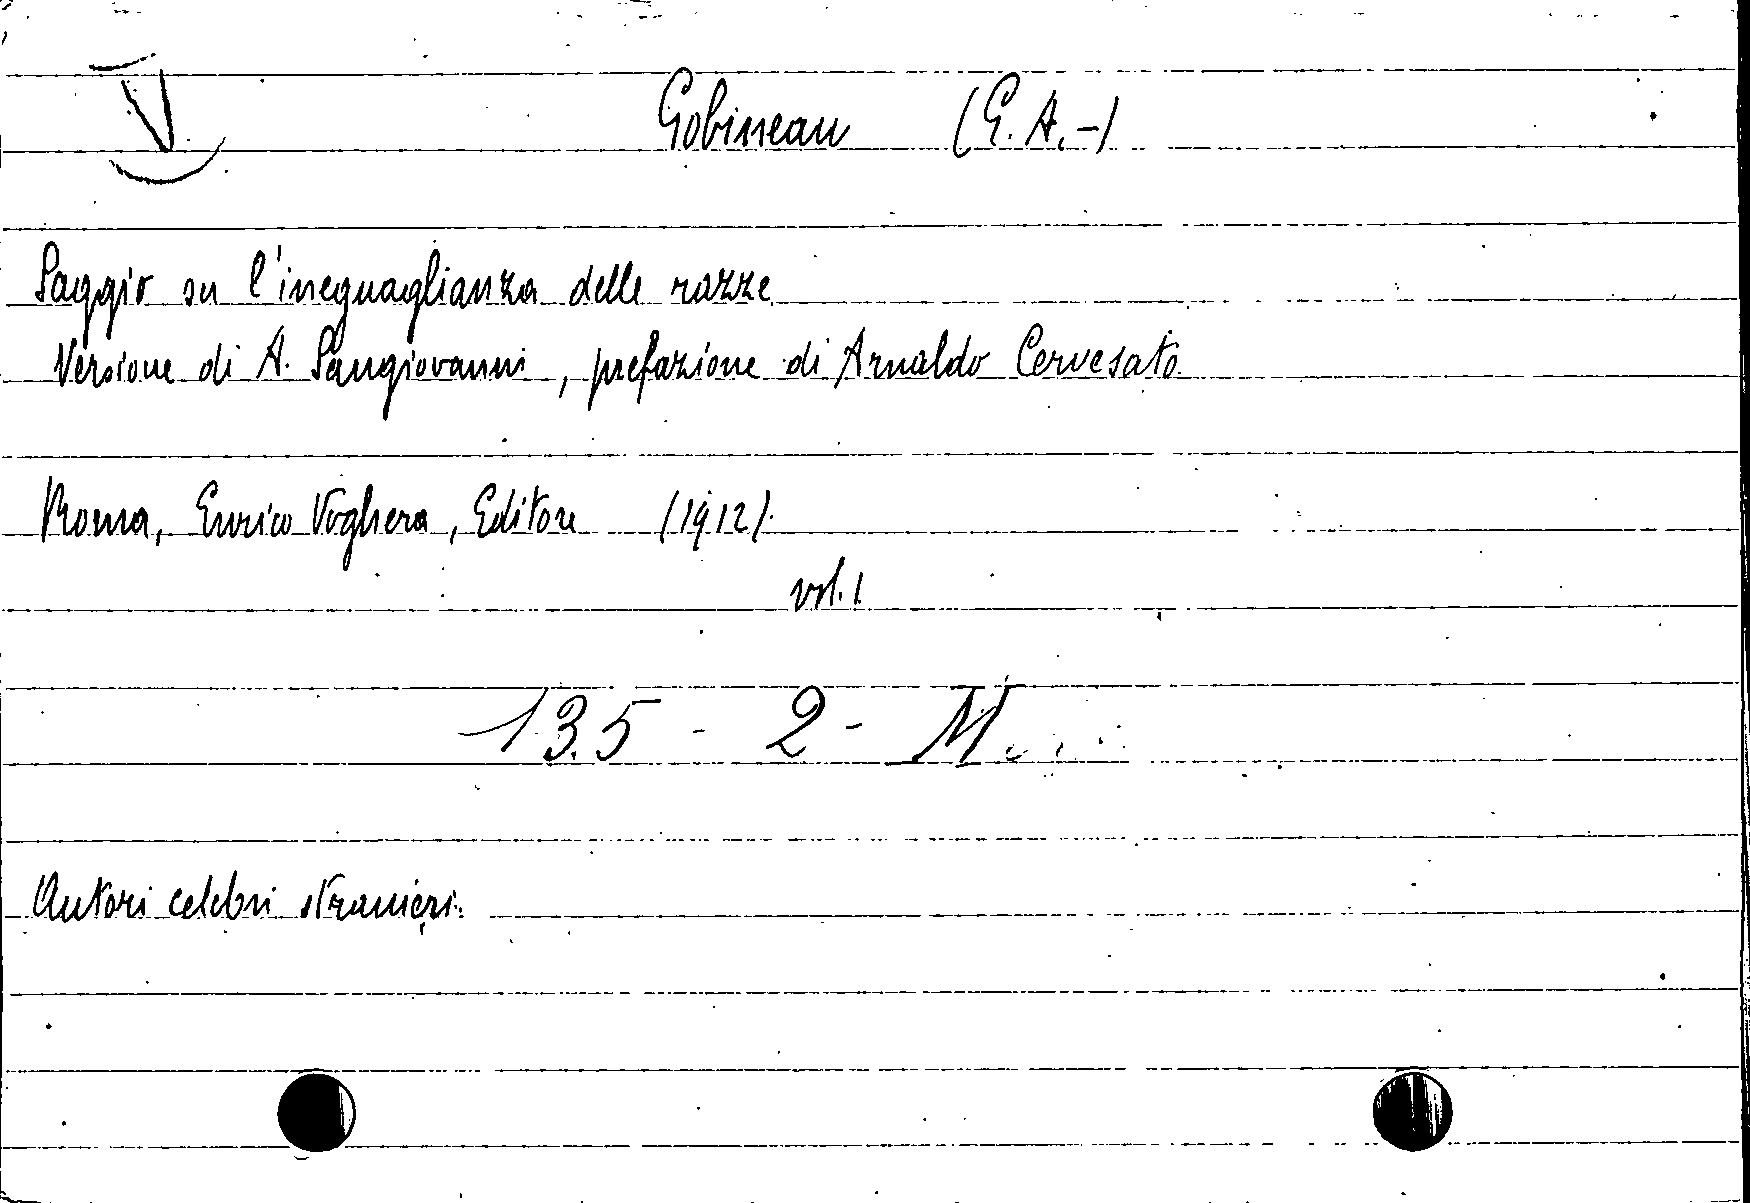 V
Gobineau (G. A.-)
Saggio su l'ineguaglianza delle razze
Versione di A. Sangiovanni, prefazione di Arnaldo Cervesato
Roma, Enrico Voghera, Editore (1912).
vol. 1
135 - 2 - M
Autori celebri stranieri.